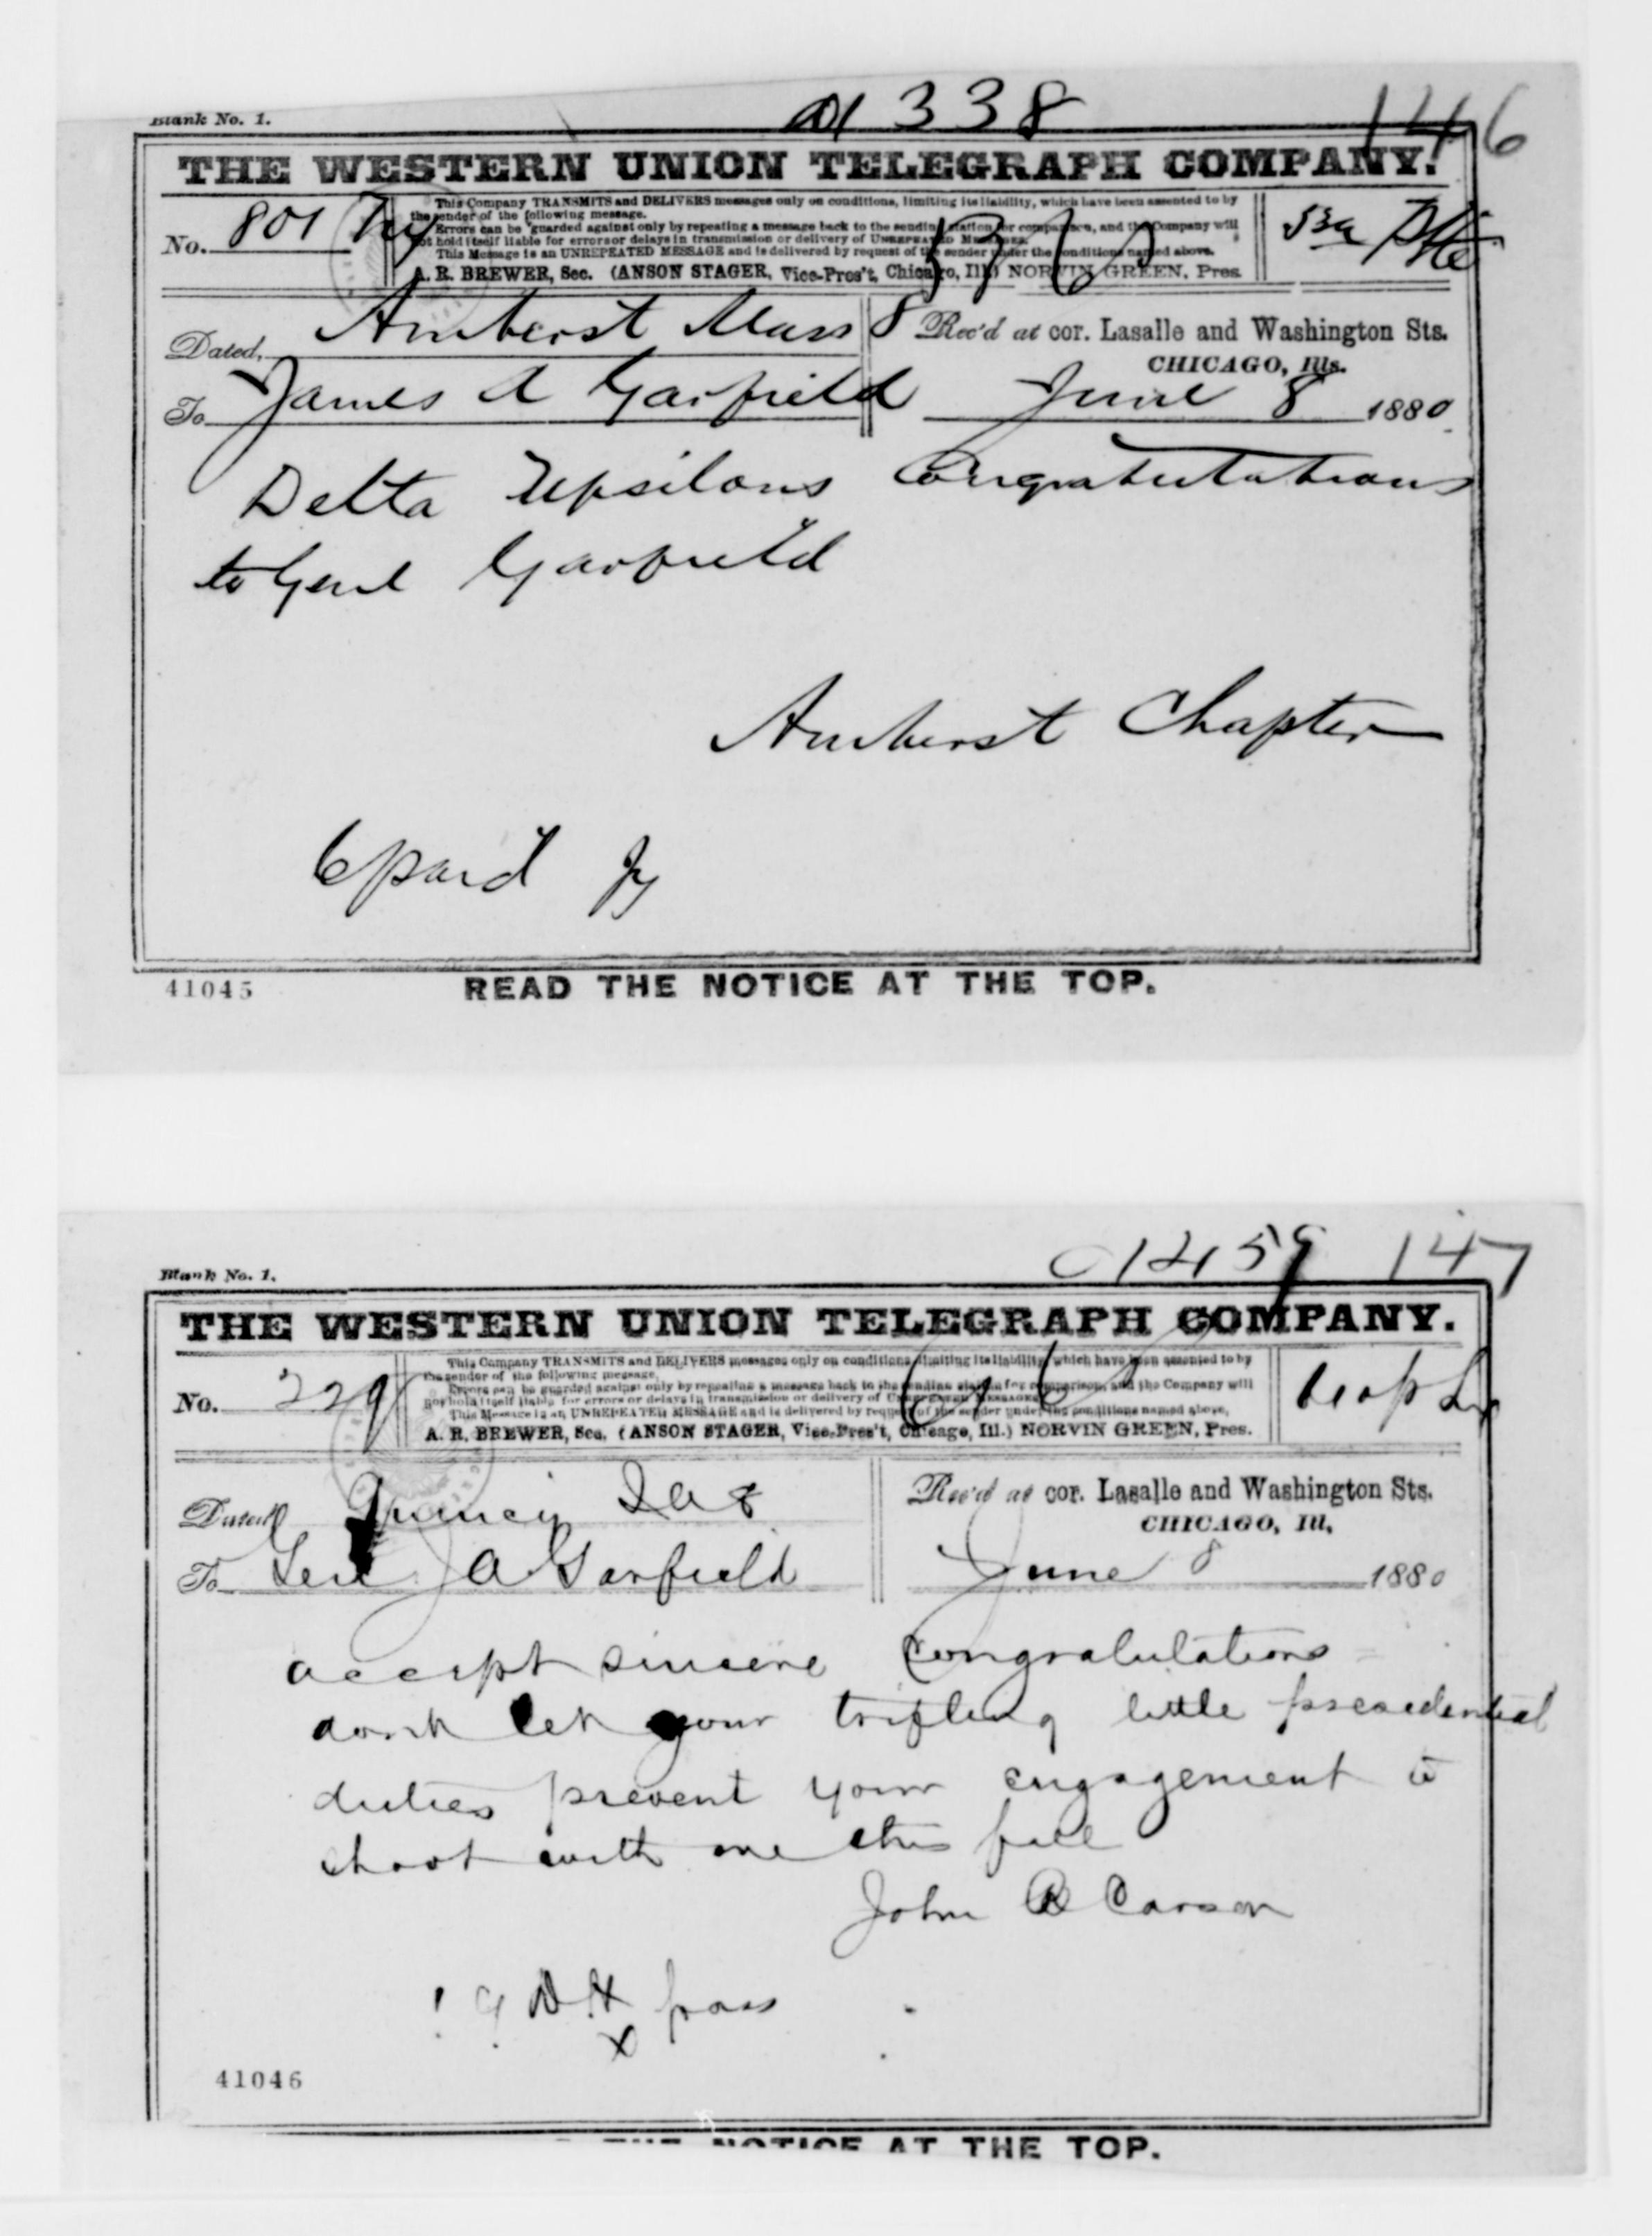 338
146
Blank No. 1.
THE WESTERN UNION TELEGRAPH COMPANY.
No. 801
This Company TRANSMITS and DELIVERS messages only on conditions, limiting its liability, which have been assented to by
the sender of the following message.
Errors can be guarded against only by repeating a message back to the sending station for comparison, and the Company will
not hold itself liable for errors or delays in transmission or delivery of UNREPEATED MESSAGES.
This Message is an UNREPEATED MESSAGE and is delivered by request of the sender under the conditions named above.
A. R. BREWER, Sec. (ANSON STAGER, Vice-Pres't, Chicago, Ill.) NORVIN GREEN, Pres.
Dated, Amherst Mass 8
Rec'd at cor. Lasalle and Washington Sts.
CHICAGO, Ills.
To James A Garfield
June 8 1880
Delta Upsilons Congratulations
to Genl Garfield
Amherst Chapter
6paid
41045
READ THE NOTICE AT THE TOP.
147
Blank No. 1.
THE WESTERN UNION TELEGRAPH COMPANY.
No. 229
This Company TRANSMITS and DELIVERS messages only on conditions, limiting its liability, which have been assented to by
the sender of the following message.
Errors can be guarded against only by repeating a message back to the sending station for comparison, and the Company will
not hold itself liable for errors or delays in transmission or delivery of UNREPEATED MESSAGES
This Message is an UNREPEATED MESSAGE and is delivered by request of the sender under the conditions named above,
A. R. BREWER, Sec. (ANSON STAGER, Vice-Pres't, Chicago, Ill.) NORVIN GREEN, Pres.
Dated Quincy Ills 8
Rec'd at cor. Lasalle and Washington Sts.
CHICAGO, Ill,
To Genl J A Garfield
June 8 1880
accept sincere Congratulations
dont let your trifling little presedential
duties prevent your engagement to
shoot with me this fall
John R Carson
41046
NOTICE AT THE TOP.